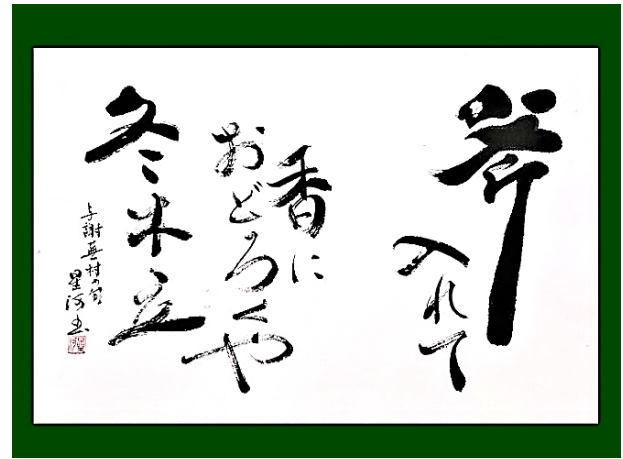 斧
入れて
香に
おどろくや
冬木立
与謝蕪村の句
星河書